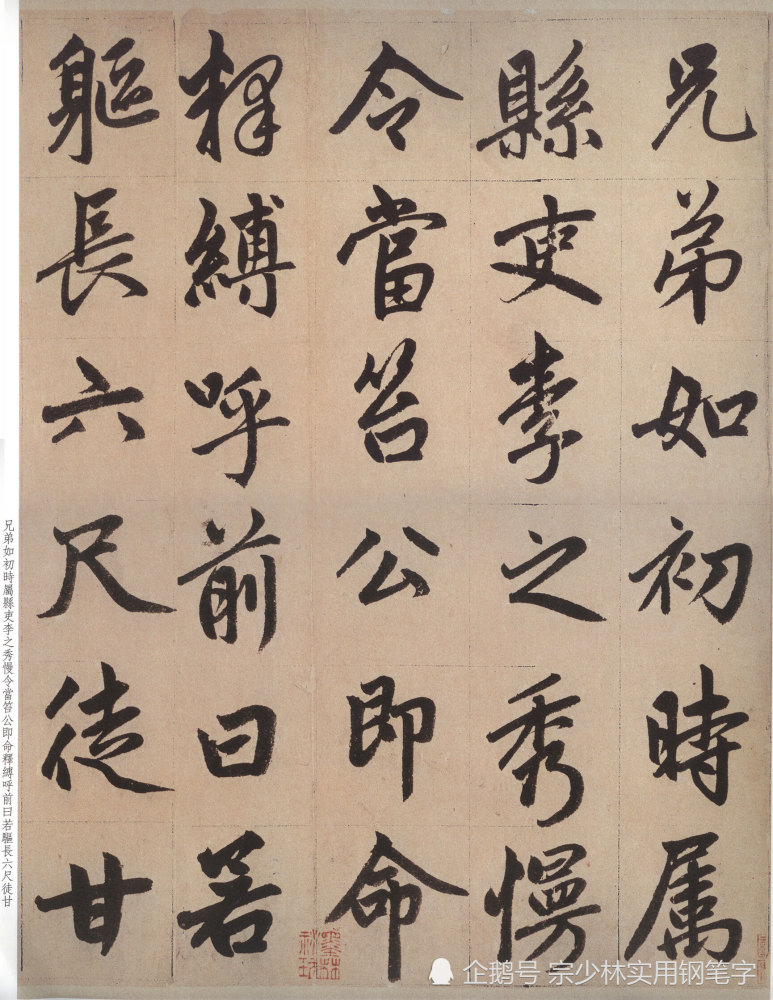 兄弟如初時属
縣吏李之秀慢
令當笞公即命
釋縛呼前曰若
軀長六尺徒甘
兄弟如初時屬縣吏李之秀慢令當笞公即命釋縛呼前曰若驅長六尺徒甘
企鹅号 宗少林实用钢笔字